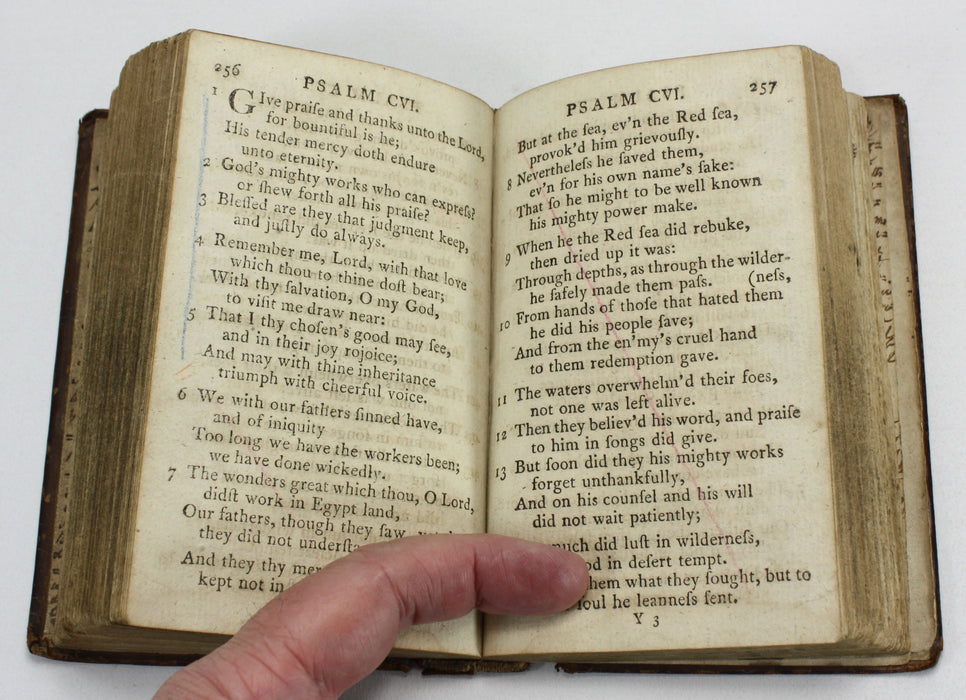 256
PSALM CVI.
1 GIve praiſe and thanks unto the Lord,
for bountiful is he;
His tender mercy doth endure
unto eternity.
2 God's mighty works who can expreſs?
or ſhew forth all his praiſe?
3 Bleſſed are they that judgment keep,
and juſtly do always.
4 Remember me, Lord, with that love
which thou to thine doſt bear;
With thy ſalvation, O my God,
to viſit me draw near:
5 That I thy choſen's good may ſee,
and in their joy rejoice;
And may with thine inheritance
triumph with cheerful voice.
6 We with our fathers ſinned have,
and of iniquity
Too long we have the workers been;
we have done wickedly.
7 The wonders great which thou, O Lord,
didſt work in Egypt land,
Our fathers, though they ſaw,
they did not underſta
And they thy mer
kept not in
PSALM CVI.
257
But at the ſea, ev'n the Red ſea,
provok'd him grievouſly.
8 Nevertheleſs he ſaved them,
ev'n for his own name's ſake:
That ſo he might to be well known
his mighty power make.
9 When he the Red ſea did rebuke,
then dried up it was:
Through depths, as through the wilder-
he ſafely made them paſs. (neſs,
10 From hands of thoſe that hated them
he did his people ſave;
And from the en'my's cruel hand
to them redemption gave.
11 The waters overwhelm'd their foes,
not one was left alive.
12 Then they believ'd his word, and praiſe
to him in ſongs did give.
13 But ſoon did they his mighty works
forget unthankfully,
And on his counſel and his will
did not wait patiently;
much did luſt in wilderneſs,
od in deſert tempt.
hem what they ſought, but to
ſoul he leanneſs ſent.
Y 3